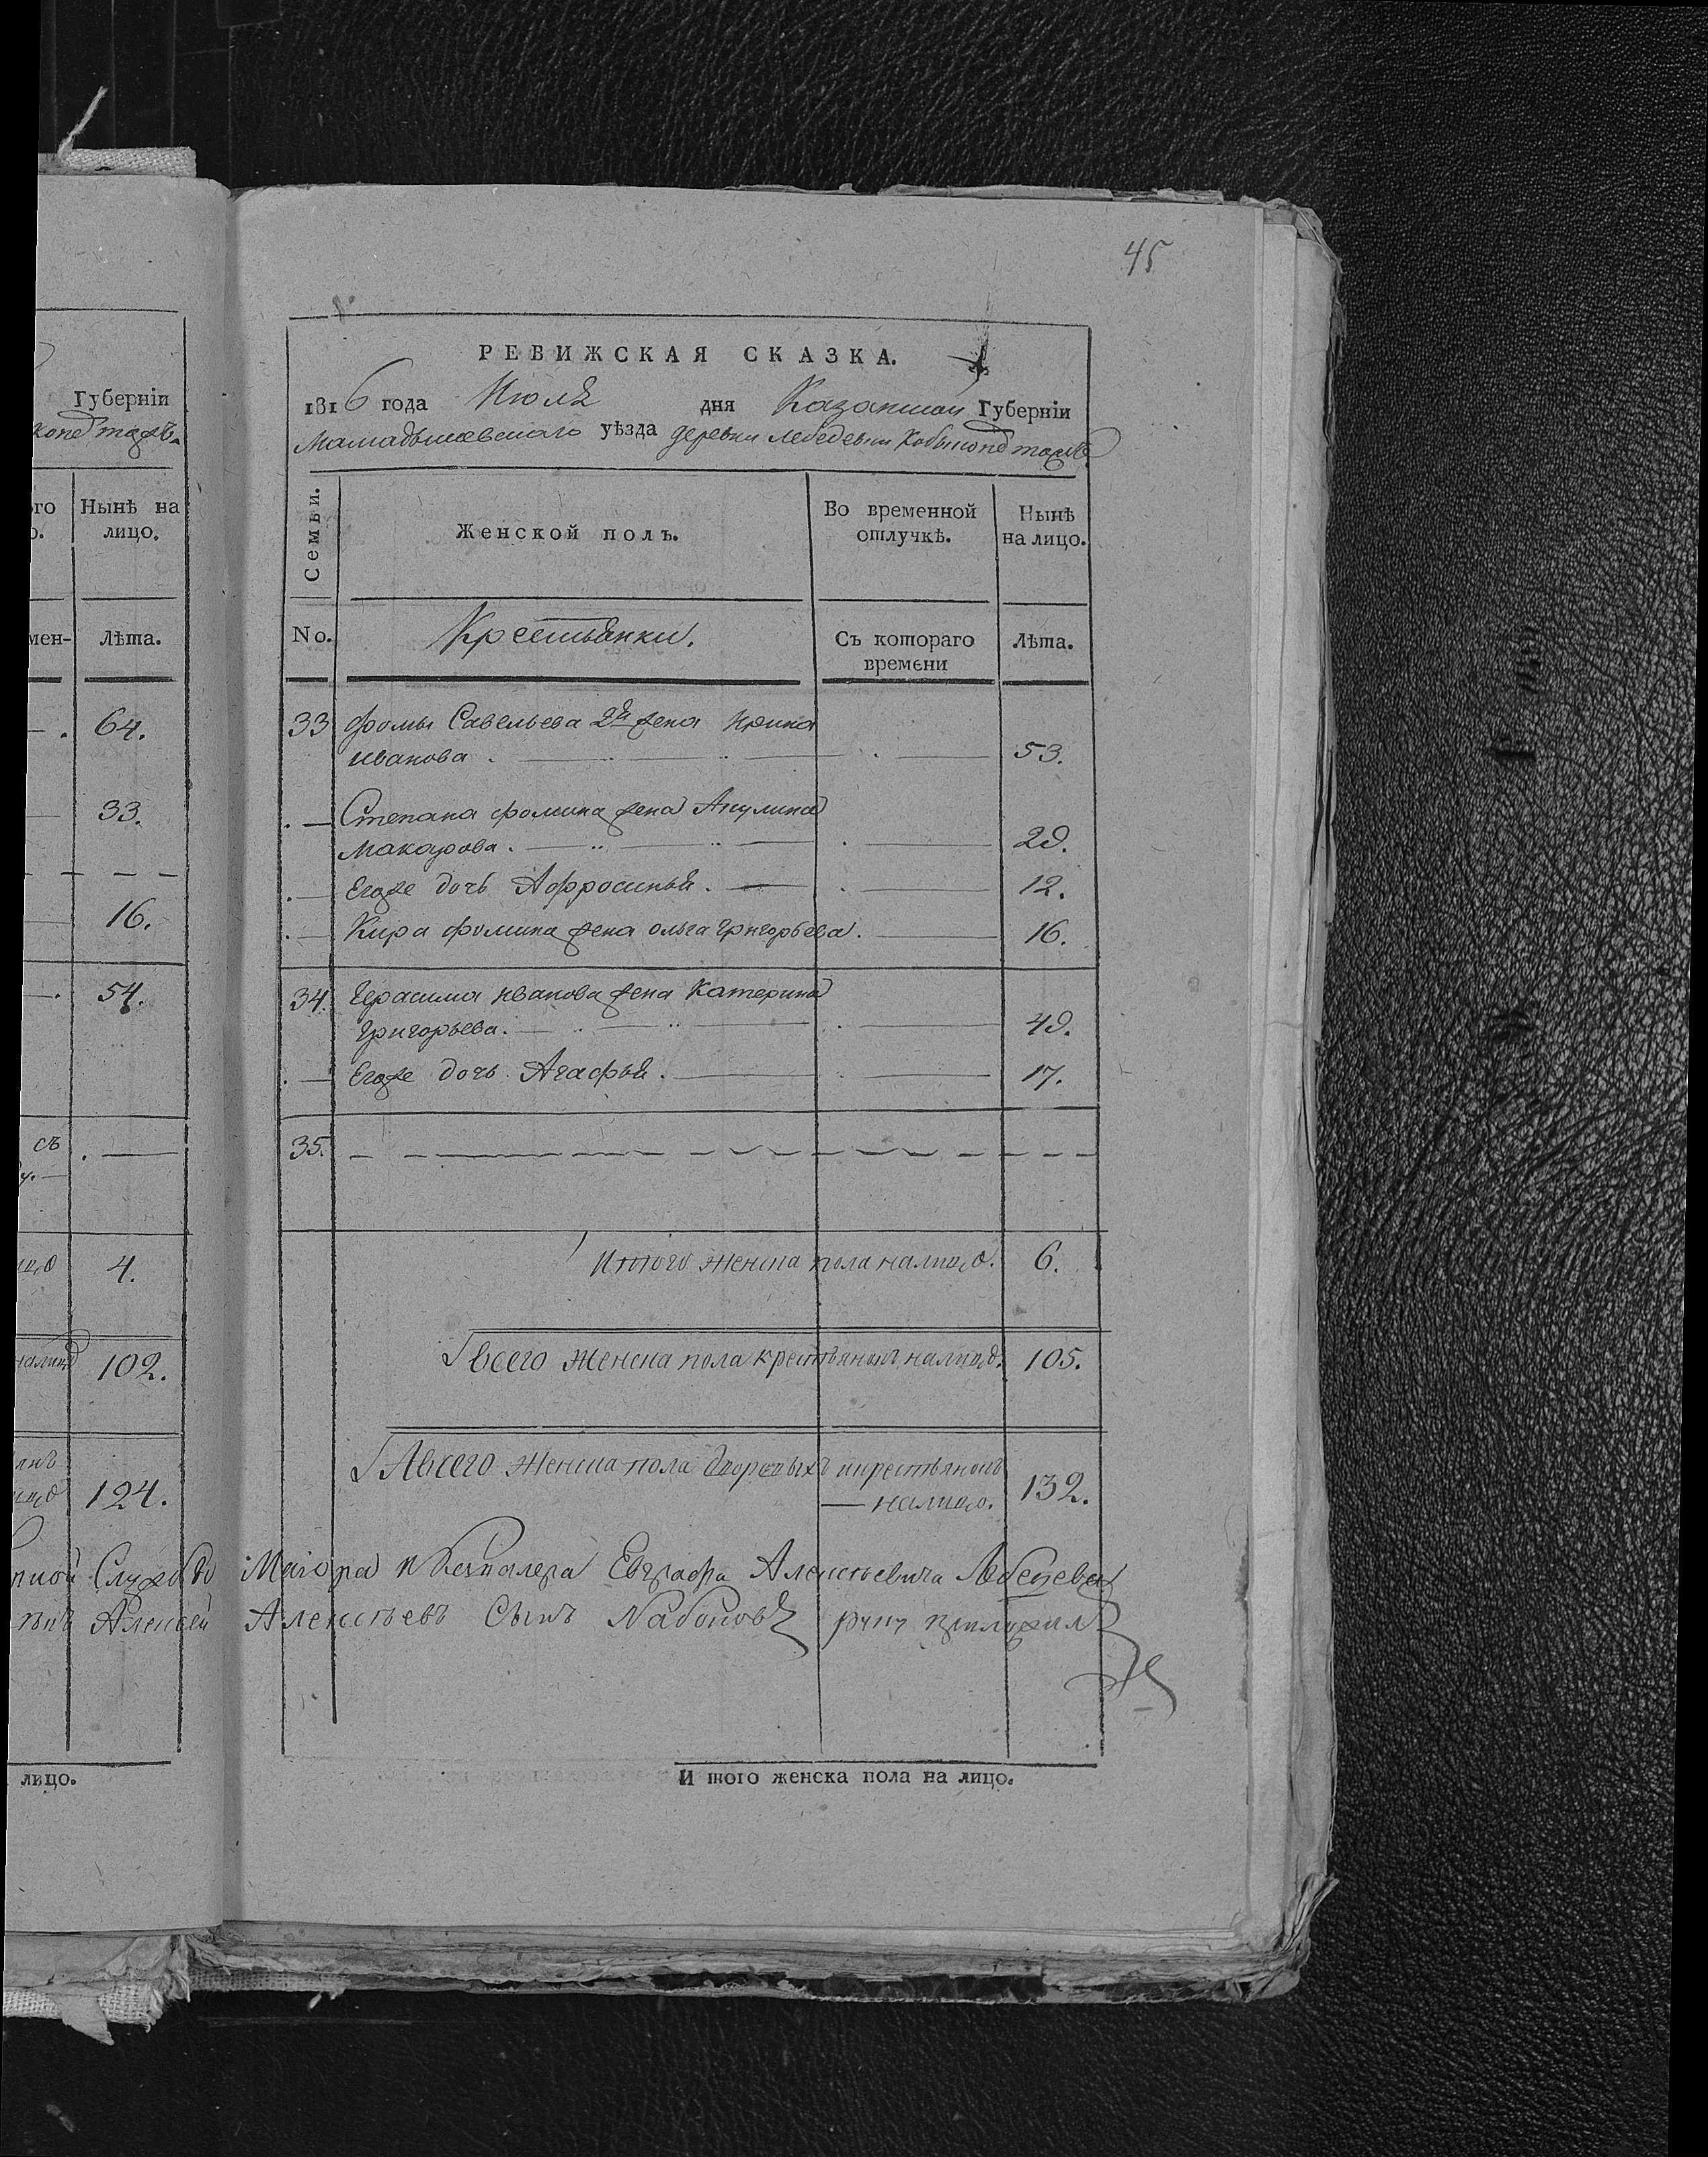 45
РЕВИЖСКАЯ СКАЗКА.
1816 года Июля дня Казанской Губернїи
Мамадышевскаго уѣзда деревни Лебедевки
Семьи.
Женской полъ.
Во временной отлучкѣ.
Нынѣ на лицо.
No.
Крестьянки.
Съ котораго времени
Лѣта.
33 Фомы Савельева 2я жена Ирина
Иванова . 53.
Степана Фомина жена Акулина
Макарова . 29.
Егоже дочь Афросинья . 12.
Кира Фомина жена Ольга Григорьева . 16.
34. Герасима Иванова жена Катерина
Григорьева . 49.
Егоже дочь Агафья . 17.
35.
Итого женска пола налицо . 6.
Всего женска пола крестьянокъ налицо . 105.
А всего женска пола дворовыхъ и крестьянокъ
налицо . 132.
Маіора и Кавалера Евграфа Алексѣевича Лебедева
Алексѣевъ Сынъ руку приложилъ
И того женска пола на лицо.
Губернїи
Нынѣ на лицо.
Лѣта.
64.
33.
16.
54.
съ
4.
102.
124.
Службы
Алексѣй
лицо.